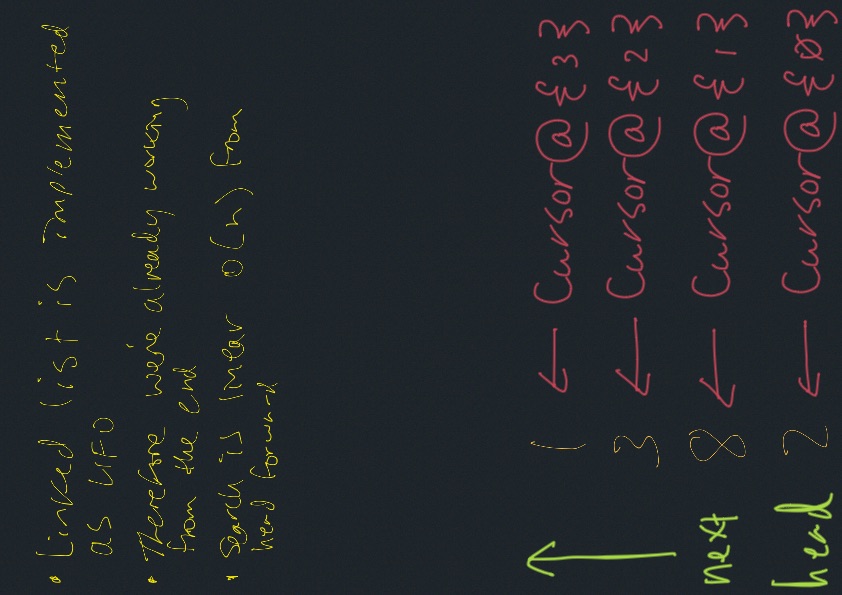 • Linked list is implemented
as LIFO
• Therefore we're already working
from the end
• Search is linear O(n) from
head forward
1 ← Cursor@{3}
3 ← Cursor@{2}
next 8 ← Cursor@{1}
head 2 ← Cursor@{0}